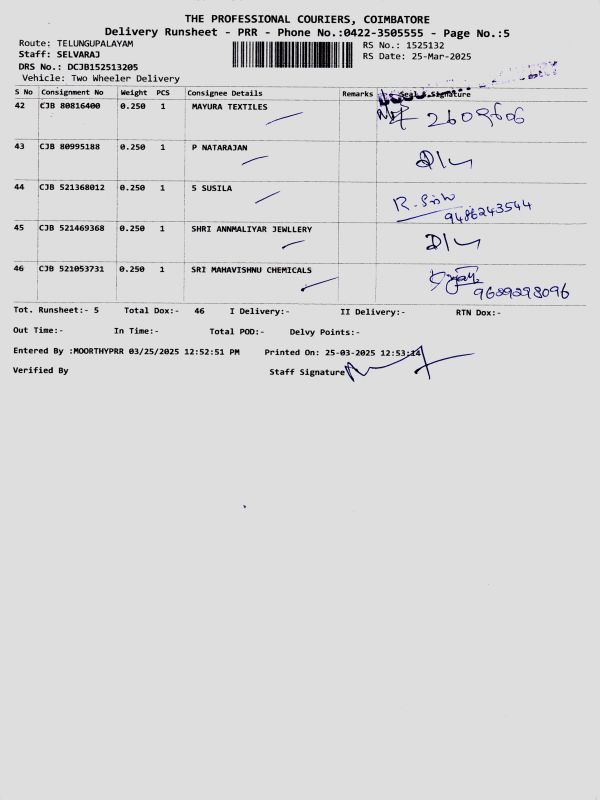 THE PROFESSIONAL COURIERS, COIMBATORE
Delivery Runsheet - PRR - Phone No.:0422-3505555 - Page No.:5
Route: TELUNGUPALAYAM
RS No.: 1525132
Staff: SELVARAJ
RS Date: 25-Mar-2025
DRS No.: DCJB152513205
Vehicle: Two Wheeler Delivery
S No Consignment No Weight PCS Consignee Details Remarks Seal & Signature
42 CJB 80816400 0.250 1 MAYURA TEXTILES 2609606
43 CJB 80995188 0.250 1 P NATARAJAN D/L
44 CJB 521368012 0.250 1 S SUSILA
9486243544
45 CJB 521469368 0.250 1 SHRI ANNMALIYAR JEWLLERY D/L
46 CJB 521053731 0.250 1 SRI MAHAVISHNU CHEMICALS
9629298096
Tot. Runsheet:- 5 Total Dox:- 46 I Delivery:- II Delivery:- RTN Dox:-
Out Time:- In Time:- Total POD:- Delvy Points:-
Entered By :MOORTHYPRR 03/25/2025 12:52:51 PM Printed On: 25-03-2025 12:53:14
Verified By Staff Signature